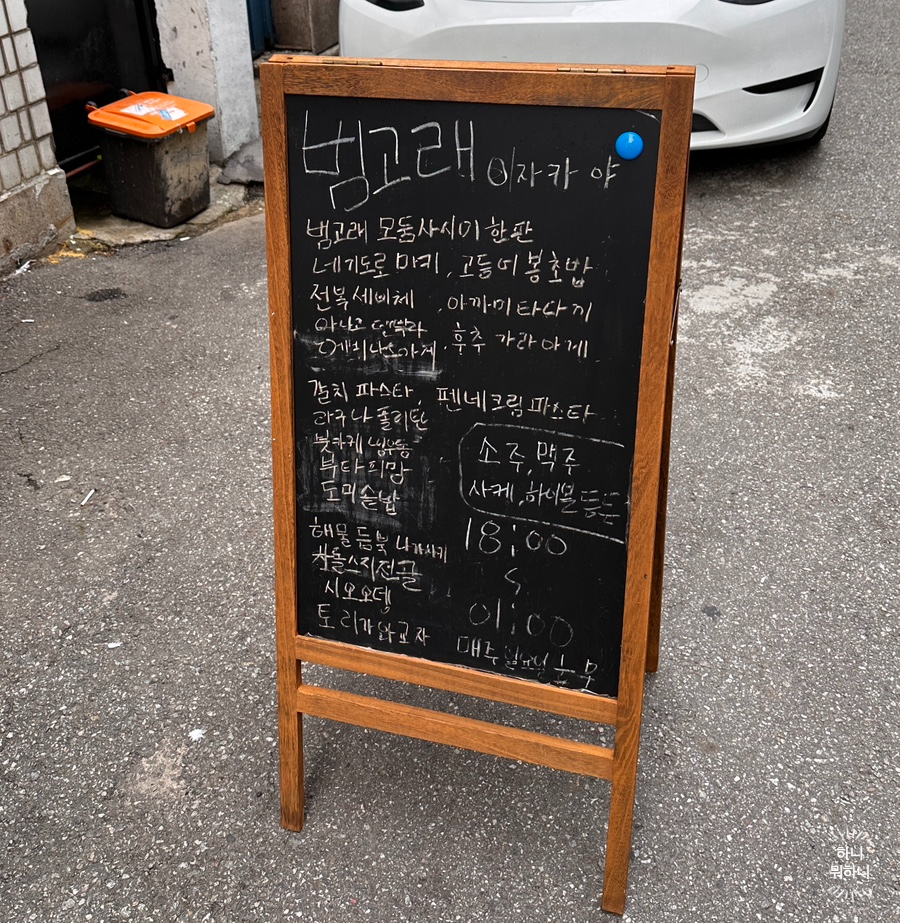 범고래 이자카야
범고래 모둠사시미 한판
네기도로 마키, 고등어봉초밥
전복세비체, 아까미타다끼
아나고 덴뿌라, 후추 가라아게
갈치 파스타, 펜네크림파스타
붓카케 냉우동
부타피망
도미솥밥
소주, 맥주
사케, 하이볼 등등
해물듬뿍 나가사키
스지전골
시오오뎅
토리가와교자
18:00
01:00
매주 일요일 휴무
하니,
뭐하니.